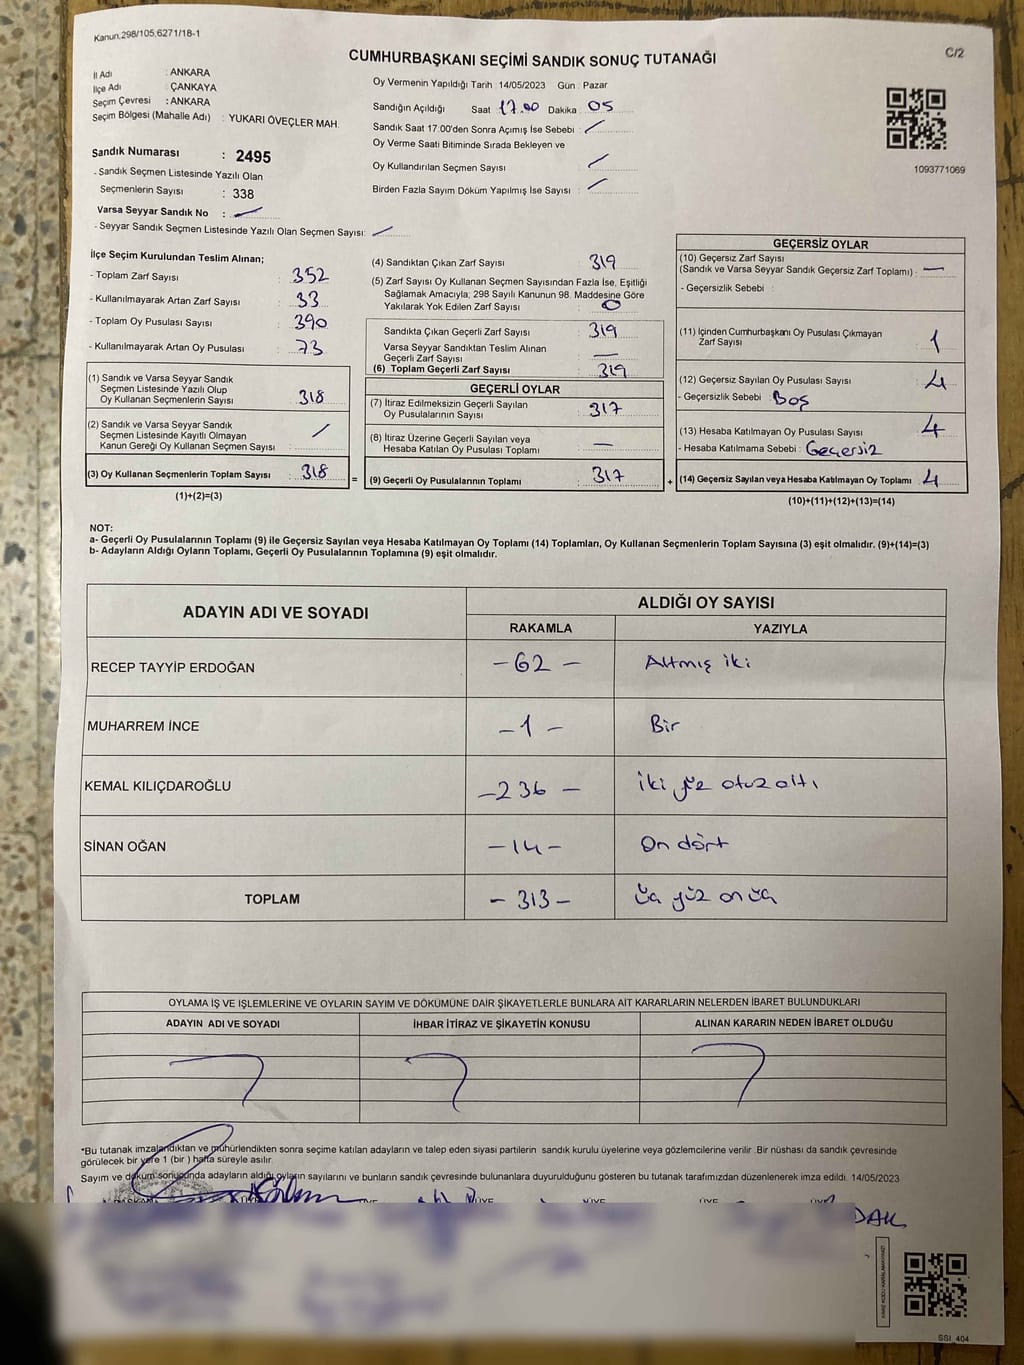 Kanun.298/105.6271/18-1
C/2
CUMHURBAŞKANI SEÇİMİ SANDIK SONUÇ TUTANAĞI
İl Adı : ANKARA
İlçe Adı : ÇANKAYA
Seçim Çevresi : ANKARA
Seçim Bölgesi (Mahalle Adı) : YUKARI ÖVEÇLER MAH.
Sandık Numarası : 2495
- Sandık Seçmen Listesinde Yazılı Olan
Seçmenlerin Sayısı : 338
Varsa Seyyar Sandık No :
- Seyyar Sandık Seçmen Listesinde Yazılı Olan Seçmen Sayısı:
Oy Vermenin Yapıldığı Tarih : 14/05/2023 Gün : Pazar
Sandığın Açıldığı Saat 17.00 Dakika 05
Sandık Saat 17:00'den Sonra Açımış İse Sebebi :
Oy Verme Saati Bitiminde Sırada Bekleyen ve
Oy Kullandırılan Seçmen Sayısı :
Birden Fazla Sayım Döküm Yapılmış İse Sayısı :
1093771069
İlçe Seçim Kurulundan Teslim Alınan;
- Toplam Zarf Sayısı : 352
- Kullanılmayarak Artan Zarf Sayısı : 33
- Toplam Oy Pusulası Sayısı : 390
- Kullanılmayarak Artan Oy Pusulası : 73
(1) Sandık ve Varsa Seyyar Sandık
Seçmen Listesinde Yazılı Olup
Oy Kullanan Seçmenlerin Sayısı : 318
(2) Sandık ve Varsa Seyyar Sandık
Seçmen Listesinde Kayıtlı Olmayan
Kanun Gereği Oy Kullanan Seçmen Sayısı :
(3) Oy Kullanan Seçmenlerin Toplam Sayısı : 318
(1)+(2)=(3)
(4) Sandıktan Çıkan Zarf Sayısı : 319
(5) Zarf Sayısı Oy Kullanan Seçmen Sayısından Fazla İse, Eşitliği
Sağlamak Amacıyla; 298 Sayılı Kanunun 98. Maddesine Göre
Yakılarak Yok Edilen Zarf Sayısı : 0
Sandıkta Çıkan Geçerli Zarf Sayısı : 319
Varsa Seyyar Sandıktan Teslim Alınan
Geçerli Zarf Sayısı : —
(6) Toplam Geçerli Zarf Sayısı : 319
GEÇERLİ OYLAR
(7) İtiraz Edilmeksizin Geçerli Sayılan
Oy Pusulalarının Sayısı : 317
(8) İtiraz Üzerine Geçerli Sayılan veya
Hesaba Katılan Oy Pusulası Toplamı : —
= (9) Geçerli Oy Pusulalarının Toplamı : 317
GEÇERSİZ OYLAR
(10) Geçersiz Zarf Sayısı
(Sandık ve Varsa Seyyar Sandık Geçersiz Zarf Toplamı) : —
- Geçersizlik Sebebi :
(11) İçinden Cumhurbaşkanı Oy Pusulası Çıkmayan
Zarf Sayısı : 1
(12) Geçersiz Sayılan Oy Pusulası Sayısı : 4
- Geçersizlik Sebebi : Boş
(13) Hesaba Katılmayan Oy Pusulası Sayısı : 4
- Hesaba Katılmama Sebebi : Geçersiz
+ (14) Geçersiz Sayılan veya Hesaba Katılmayan Oy Toplamı : 4
(10)+(11)+(12)+(13)=(14)
NOT:
a- Geçerli Oy Pusulalarının Toplamı (9) ile Geçersiz Sayılan veya Hesaba Katılmayan Oy Toplamı (14) Toplamları, Oy Kullanan Seçmenlerin Toplam Sayısına (3) eşit olmalıdır. (9)+(14)=(3)
b- Adayların Aldığı Oyların Toplamı, Geçerli Oy Pusulalarının Toplamına (9) eşit olmalıdır.
ADAYIN ADI VE SOYADI
ALDIĞI OY SAYISI
RAKAMLA YAZIYLA
RECEP TAYYİP ERDOĞAN -62- Altmış iki
MUHARREM İNCE -1- Bir
KEMAL KILIÇDAROĞLU -236- iki yüz otuz altı
SİNAN OĞAN -14- On dört
TOPLAM -313- Üç yüz on üç
OYLAMA İŞ VE İŞLEMLERİNE VE OYLARIN SAYIM VE DÖKÜMÜNE DAİR ŞİKAYETLERLE BUNLARA AİT KARARLARIN NELERDEN İBARET BULUNDUKLARI
ADAYIN ADI VE SOYADI İHBAR İTİRAZ VE ŞİKAYETİN KONUSU ALINAN KARARIN NEDEN İBARET OLDUĞU
*Bu tutanak imzalandıktan ve mühürlendikten sonra seçime katılan adayların ve talep eden siyasi partilerin sandık kurulu üyelerine veya gözlemcilerine verilir. Bir nüshası da sandık çevresinde
görülecek bir yere 1 (bir) hafta süreyle asılır.
Sayım ve döküm sonucunda adayların aldığı oyların sayılarını ve bunların sandık çevresinde bulunanlara duyurulduğunu gösteren bu tutanak tarafımızdan düzenlenerek imza edildi. 14/05/2023
BAŞKAN ÜYE ÜYE ÜYE ÜYE
SSI 404